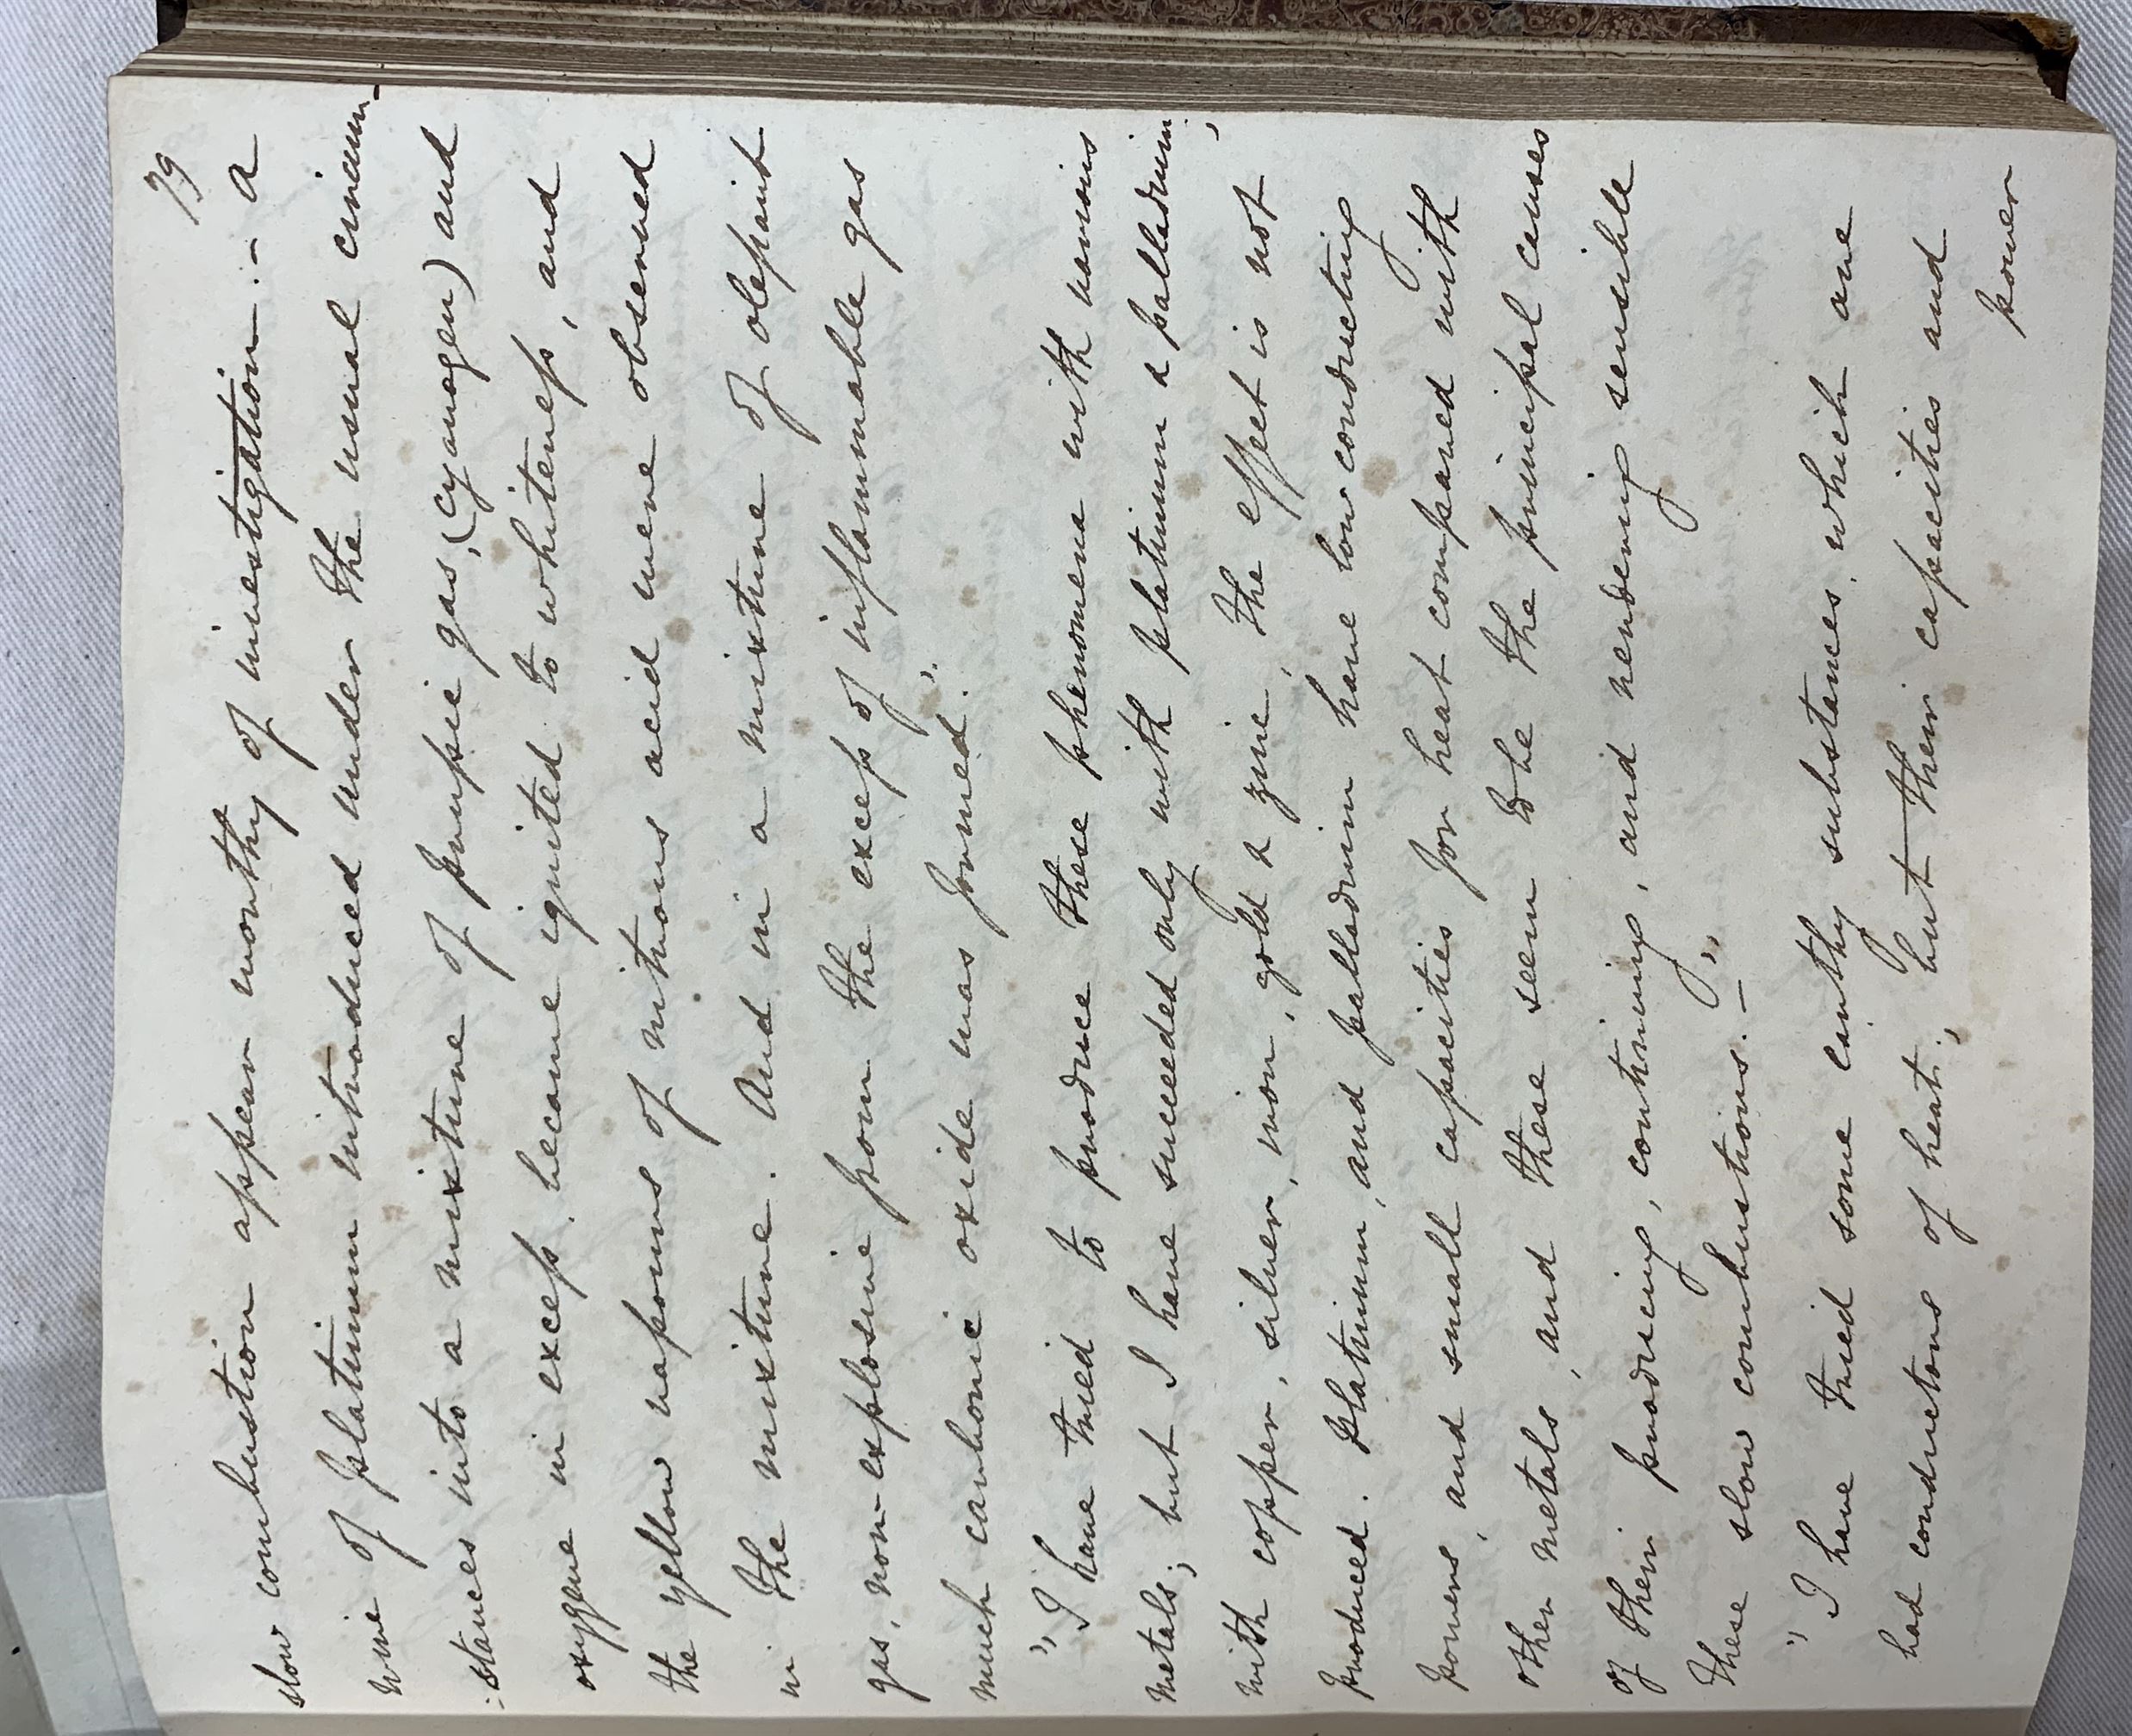 79
slow combustion appear worthy of investigation :- a
wire of platinum introduced under the usual circum-
:stances into a mixture of prussic gas, (cyanogen) and
oxygene in excess, became ignited to whiteness, and
the yellow vapours of nitrous acid were observed
in the mixture. And in a mixture of olefiant
gas, non-explosive from the excess of inflammable gas
much carbonic oxide was formed."
" I have tried to produce these phenomena with various
metals; but I have succeeded only with platinum & palladium;
with copper, silver, iron, gold & zinc, the effect is not
produced. Platinum, and palladium have low conducting
powers, and small capacities for heat compared with
other metals, and these seem to be the principal causes
of their producing, continuing, and rendering sensible
these slow combustions.–"
" I have tried some earthy substances, which are
bad conductors of heat; but their capacities and
power